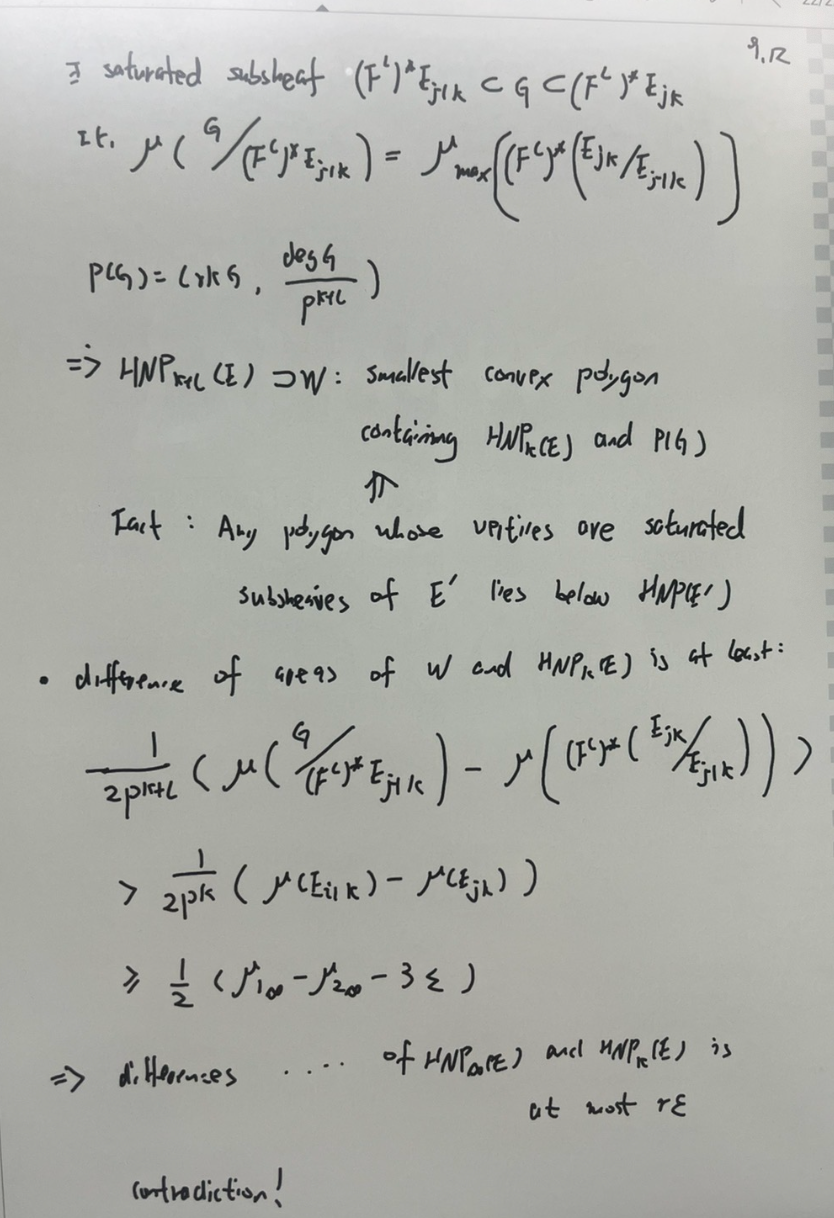 9.12
∃ saturated subsheaf (F^l)^* E_{j-1k} ⊂ G ⊂ (F^l)^* E_{jk}
s.t. μ( G/(F^l)^* E_{j-1k} ) = μ_max( (F^l)^*( E_{jk}/E_{j-1k} ) )
P(G) = (rk G, deg G / p^{k+l})
=> HNP_{k+l}(E) ⊃ W : smallest convex polygon
containing HNP_k(E) and P(G)
⇑
Fact : Any polygon whose vertices are saturated
subsheaves of E' lies below HNP(E')
• difference of areas of W and HNP_k(E) is at least:
1/2p^{k+l} ( μ( G/(F^l)^* E_{j-1k} ) - μ( (F^l)^*( E_{jk}/E_{j-1k} ) ) ) >
> 1/2p^k ( μ(E_{i-1k}) - μ(E_{jk}) )
≥ 1/2 ( μ_{1∞} - μ_{2∞} - 3ε )
=> differences .... of HNP_∞(E) and HNP_k(E) is
at most rε
contradiction!